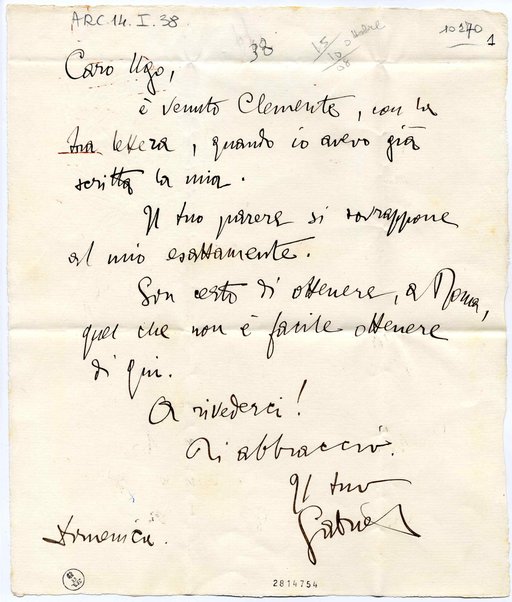 ARC.14.I.38.
38
15
ottobre
38
10270
1
Caro Ugo,
è venuto Clemente, con la
tua lettera, quando io avevo già
scritta la mia.
Il tuo parere si sovrappone
al mio esattamente.
Son certo di ottenere, a Roma,
quel che non è facile ottenere
di qui.
A rivederci!
Ti abbraccio.
Il tuo
Gabriel
Domenica.
2814754